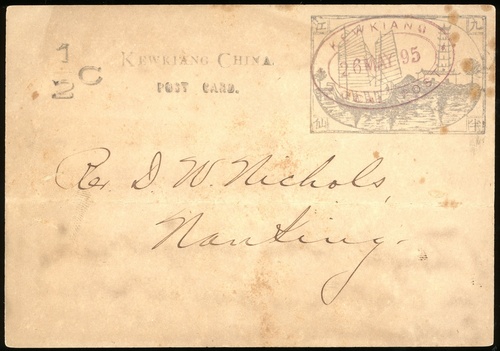 1/2 C
KEWKIANG CHINA.
POST CARD.
江 九
KEWKIANG
26 MAY 95
LOCAL POST
仙 半
Rev D. W. Nichols,
Nanking.